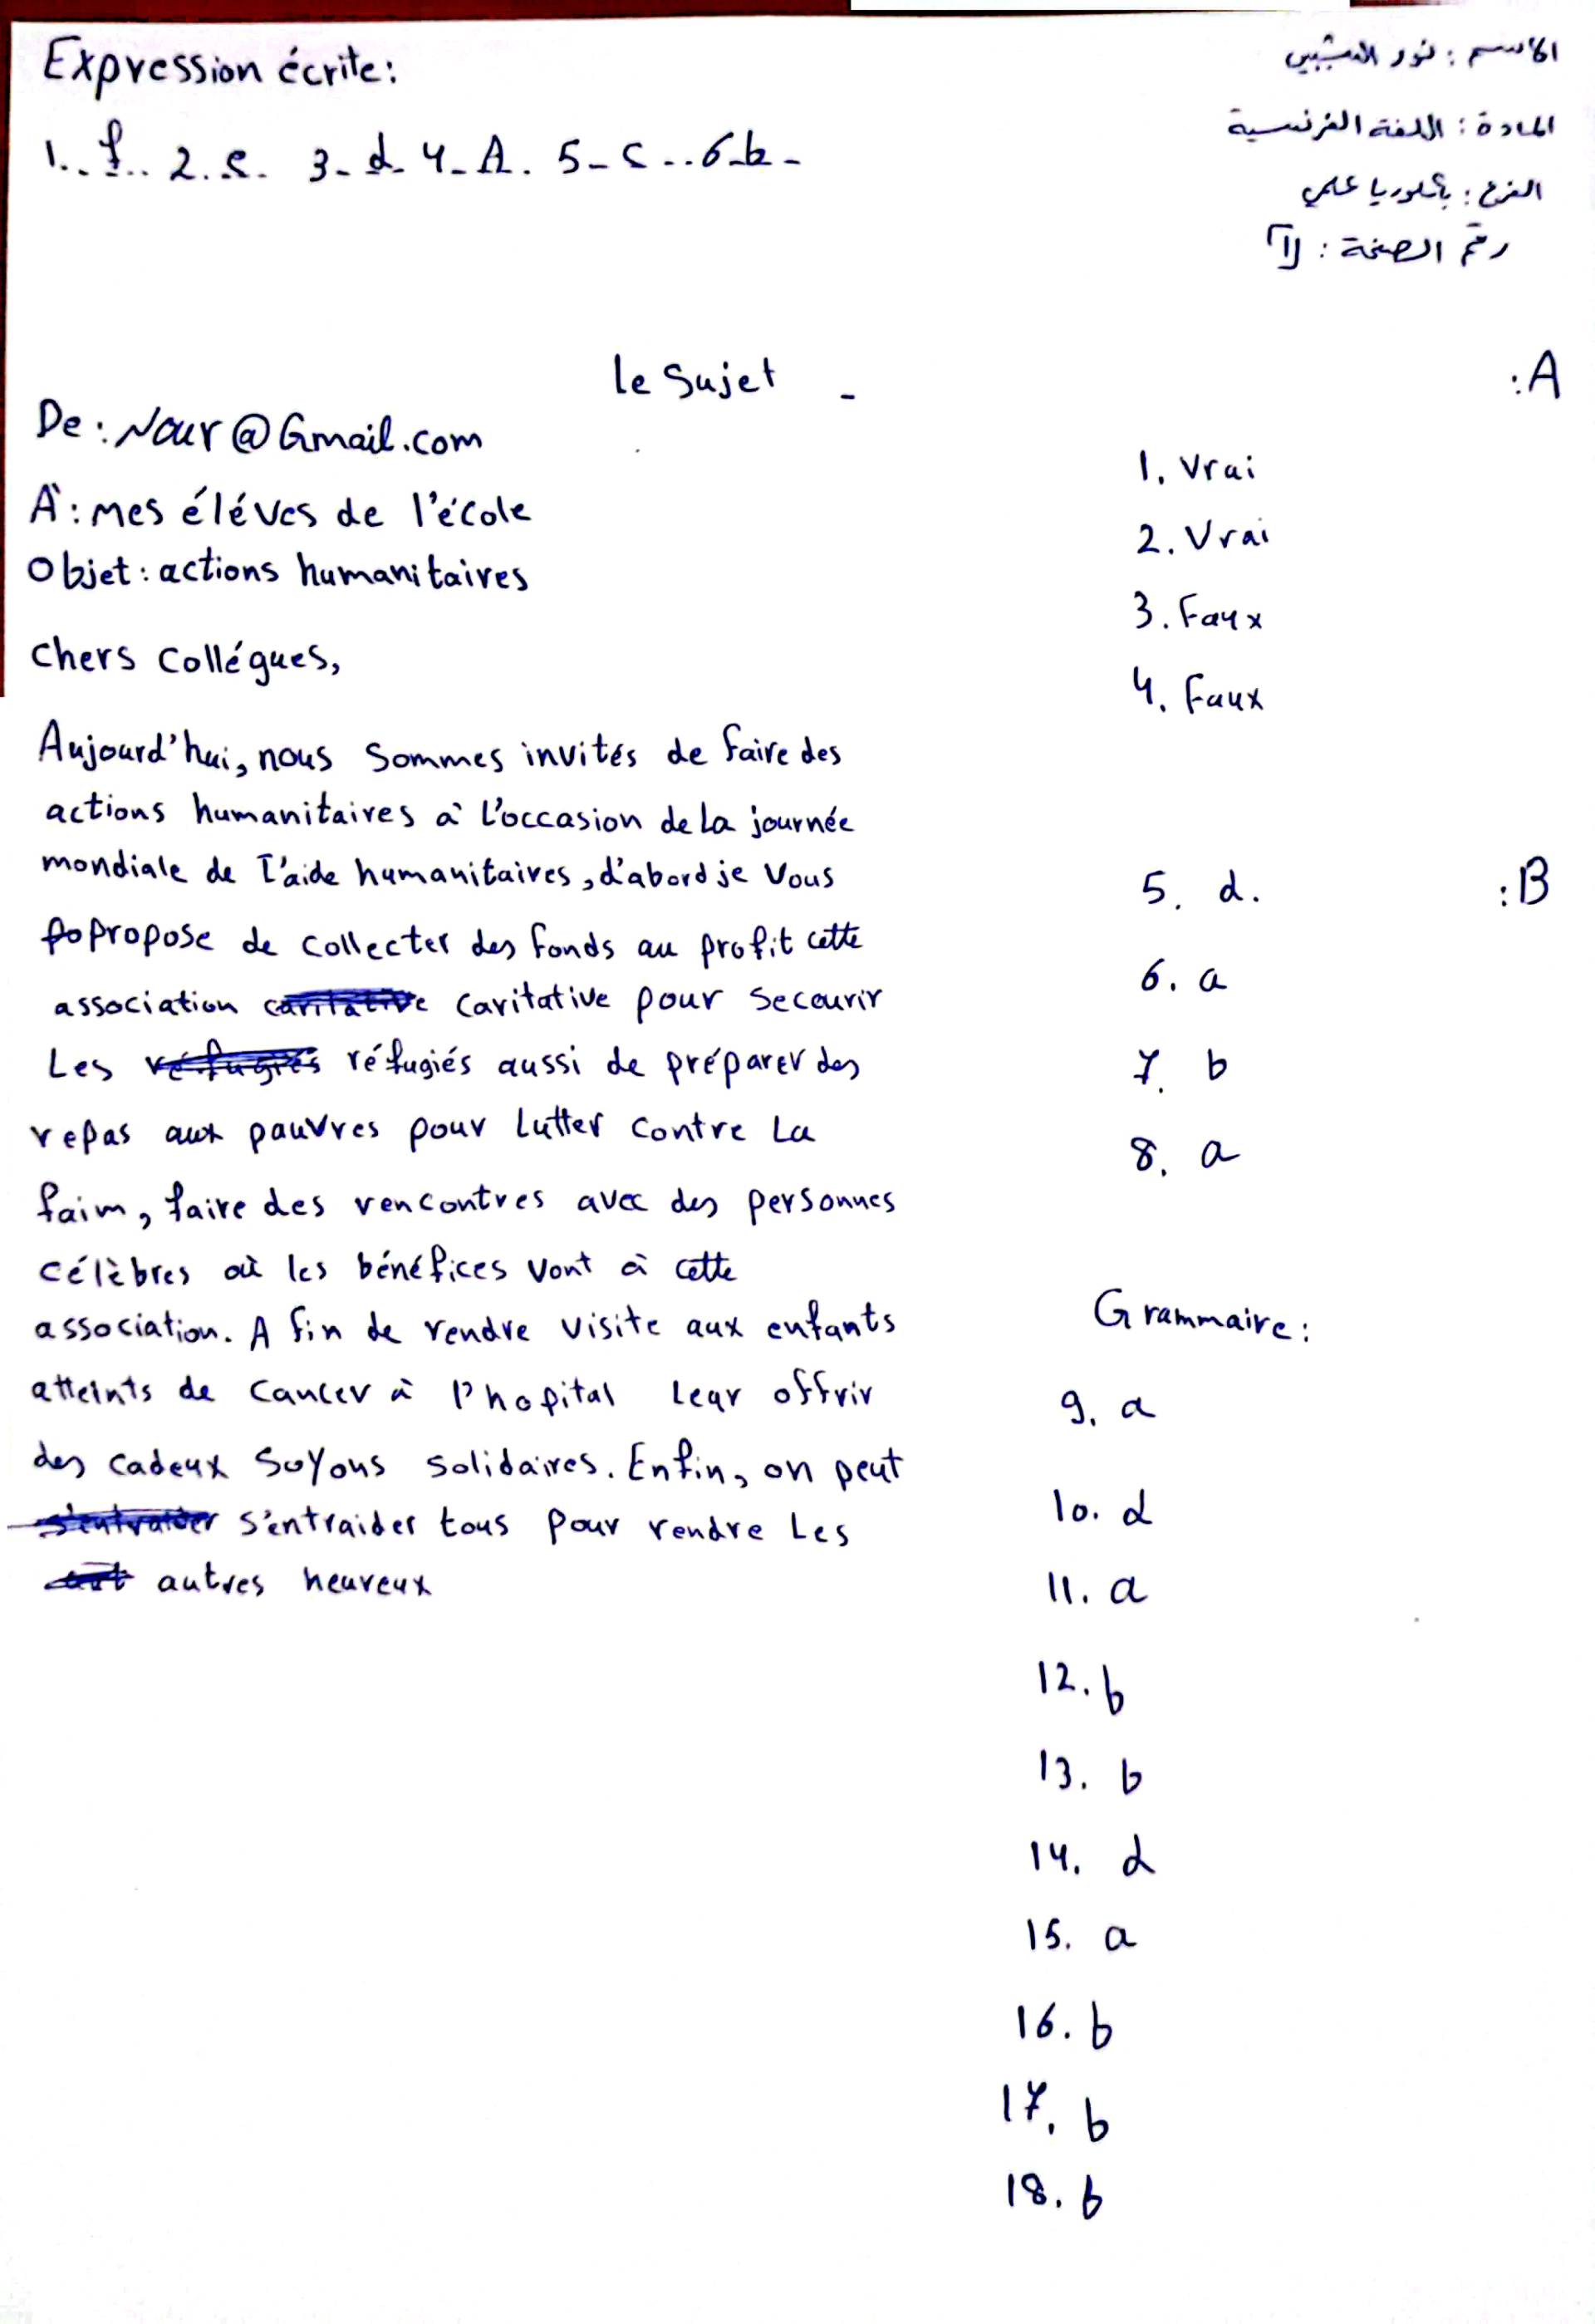 الاسم : نور
المادة : اللغة الفرنسية
الفرع : بكلوريا علمي
رقم الصفحة : 1
Expression écrite:
1... f... 2. e. 3- d- 4- A. 5- c -.. 6-b-
le Sujet -
De : Nour@Gmail.com
À : mes éléves de l'école
Objet : actions humanitaires
Chers Collégues,
Aujourd'hui, nous Sommes invités de faire des
actions humanitaires à l'occasion de la journée
mondiale de l'aide humanitaires, d'abord je Vous
propose de collecter des fonds au profit cette
association caritative pour secourir
Les réfugiés aussi de préparer des
repas aux pauvres pour Lutter contre La
faim, faire des rencontres avec des personnes
célèbres où les bénéfices vont à cette
association. A fin de rendre visite aux enfants
atteints de cancer à l'hopital leur offrir
des cadeux Soyons solidaires. Enfin, on peut
s'entraider tous pour rendre Les
autres heureux
:A
1. Vrai
2. Vrai
3. Faux
4. Faux
:B
5. d.
6. a
7. b
8. a
Grammaire:
9. a
10. d
11. a
12. b
13. b
14. d
15. a
16. b
17. b
18. b